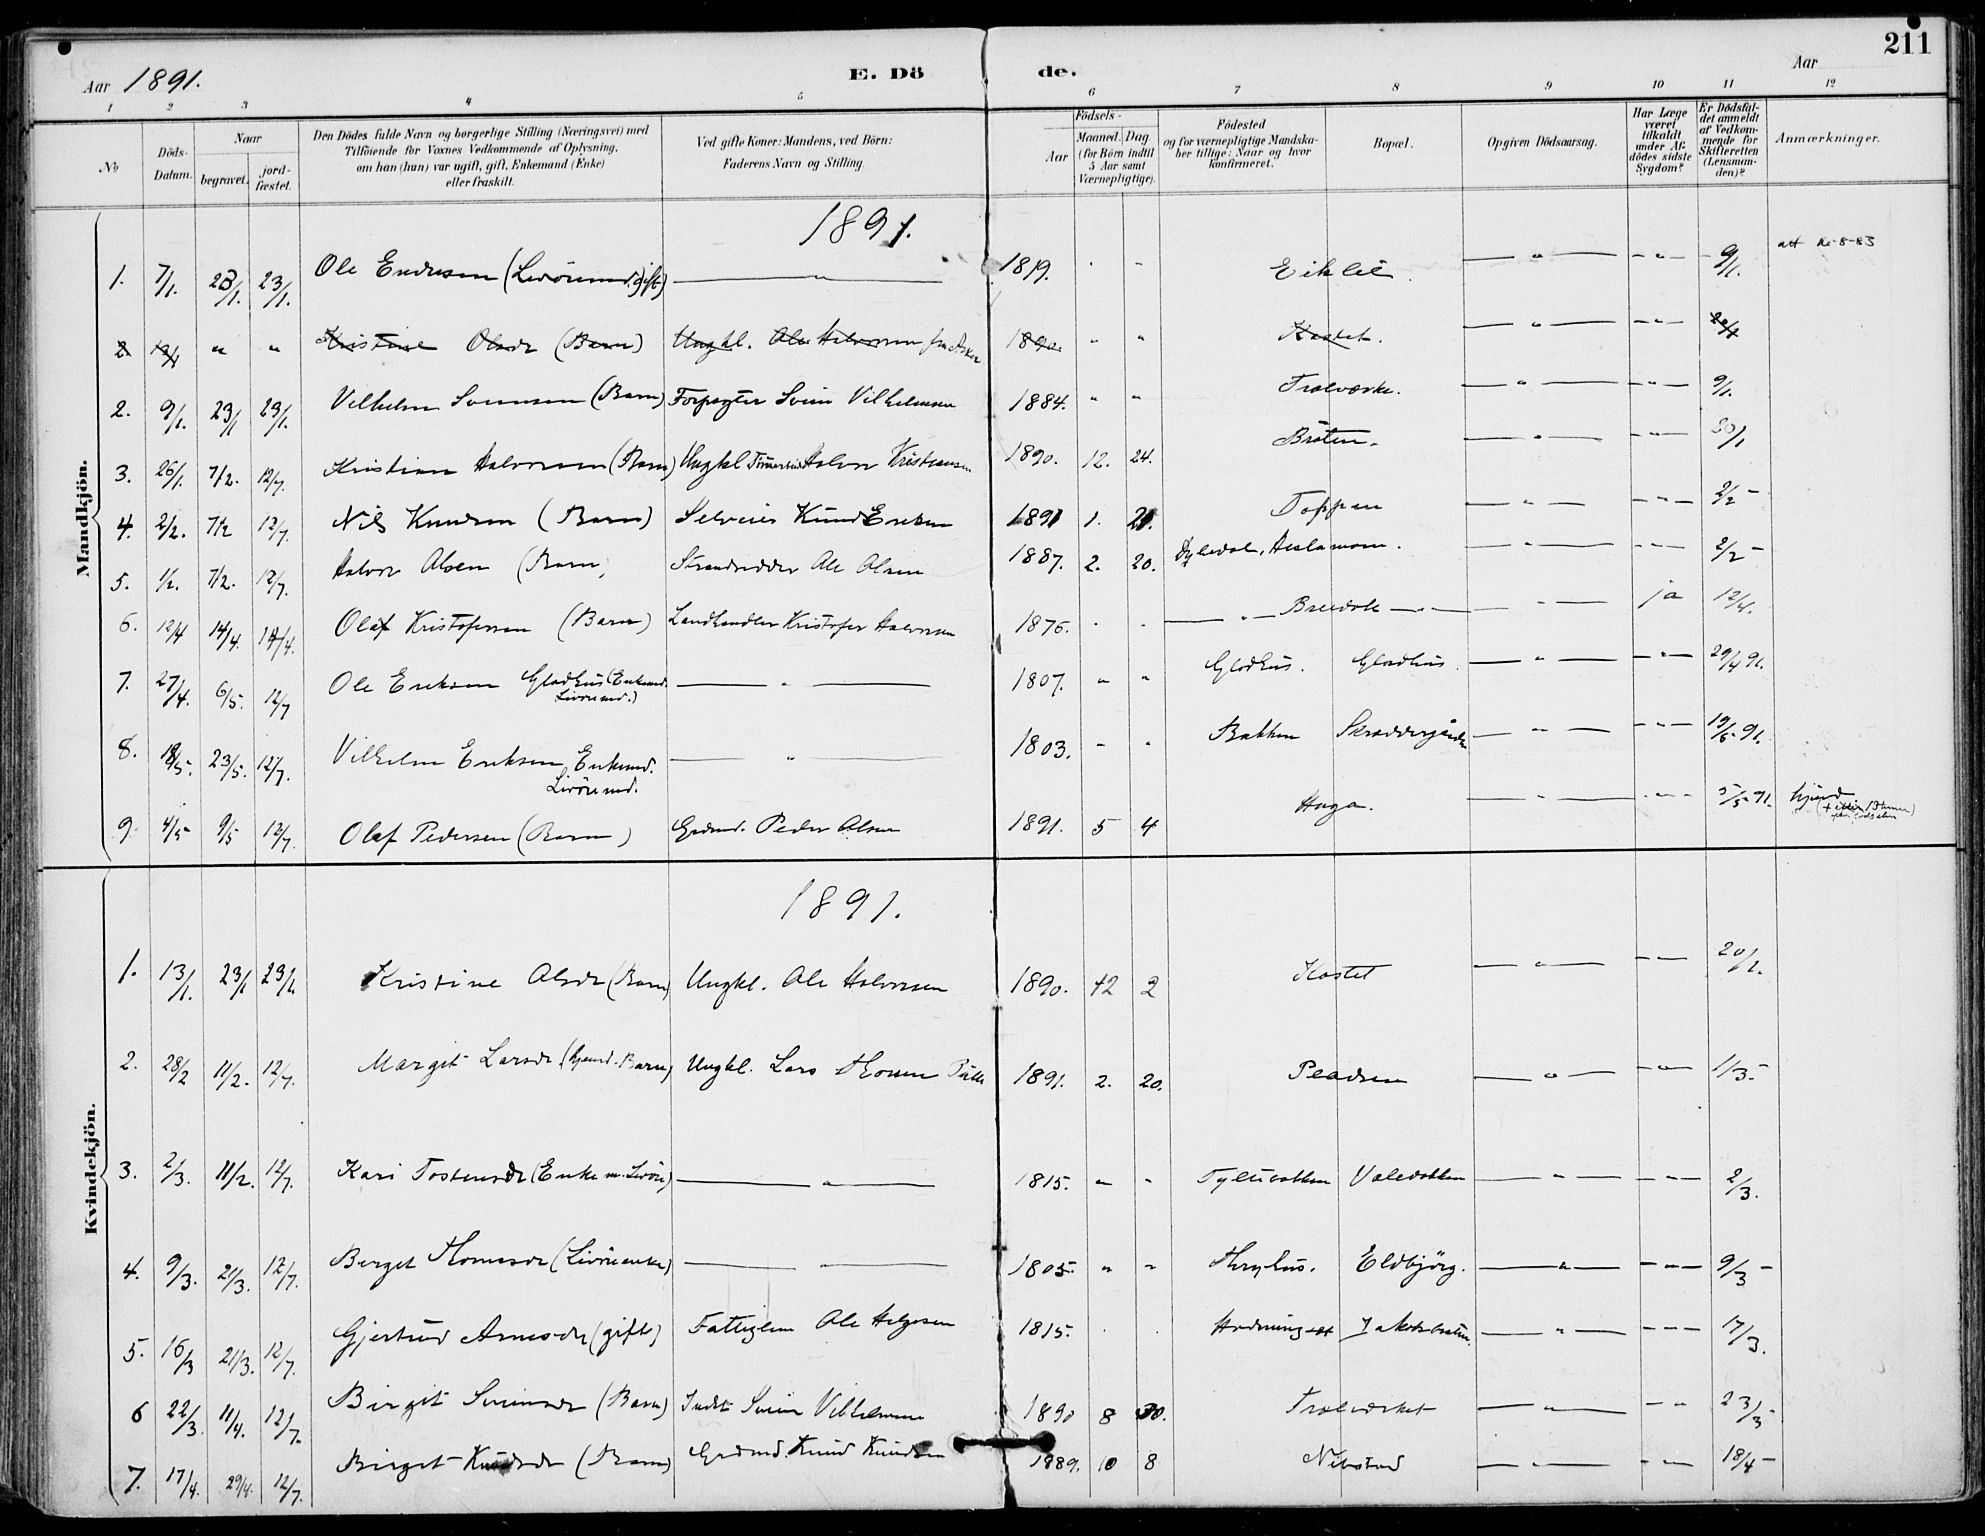 211
Aar 1891. E. Dö de. Aar
1 2 3 4 5 6 7 8 9 10 11 12
No
Döds-Datum.
Naar
begravet.
jord-fæstet.
Den Dödes fulde Navn og borgerlige Stilling (Næringsvei) med
Tilföiende for Voxnes Vedkommende af Oplysning,
om han (hun) var ugift, gift, Enkemand (Enke)
eller fraskilt.
Ved gifte Koner: Mandens, ved Börn:
Faderens Navn og Stilling.
Födsels-
Aar
Maaned. Dag.
(for Börn indtil
5 Aar samt
Værnepligtige).
Födested
og for værnepligtige Mandska-
ber tillige: Naar og hvor
konfirmeret.
Bopæl.
Opgiven Dödsaarsag.
Har Læge
været
tilkaldt
under Af-
dödes sidste
Sygdom?
Er Dödsfal-
det anmeldt
af Vedkom-
mende for
Skifteretten
(Lensman-
den)?
Anmærkninger.
Mandkjön.
1891.
1. 7/1. 23/1. 23/1. Ole Endresen (gift) — " — 1819. Eiklid — " — — " — 9/1.
2 " " Kristine Olsdr (Barn) Ungkl. Ole Halvorsen fra 1890. " " Kastet. — " — — " —
2. 9/1. 23/1 23/1. Vilhelm Svensen (Barn) Forpagter Svein Vilhelmsen 1884. " " Trolværke. — " — — " — 9/1.
3. 26/1. 7/2. 12/7. Kristian Halvorsen (Barn) Ungkl Halvor Kristiansen 1890. 12. 24. Bråten. — " — — " — 30/1
4. 2/2. 7/2 12/7. Nils Knudsen (Barn) Selveier Knud Eriksen 1891 1. 21. Toppen — " — — " — 2/2 -
5. 1/2. 7/2. 12/7. Halvor Olsen (Barn) Strandsidder Ole Olsen 1887. 2. 20. — " — — " — 2/2 -
6. 12/4 14/4. 14/4. Olaf Kristofersen (Barn) Landhandler Kristofer Halvorsen 1876. — " — Breidole — " — — " — ja 12/4.
7. 27/4. 6/5. 12/7 Ole Eriksen Gladhus (Enkemd. — " — 1807. " " Gladhus. Gladhus. — " — — " — 29/4 91.
8. 18/5. 23/5. 12/7. Vilhelm Eriksen, Enkemd. — " — 1803. " " Bakken — " — — " — 19/5 91.
9. 4/5 9/5 12/7. Olaf Pedersen (Barn) Grdmd. Peder Olsen 1891. 5 4 Haga. — " — — " — 5/5 91.
Kvindekjön.
1891.
1. 13/1. 23/1 23/1 Kristine Olsdr (Barn) Ungkl. Ole Halvorsen 1890. 12 2 Kastet — " — — " — 20/1.
2. 28/2 11/2. 12/7. Margit Larsdr (hjemd. Barn) Ungkl. Lars 1891. 2. 20. — " — — " — 11/3.-
3. 2/3. 11/2. 12/7. Kari Tostensdr (Enke — " — 1815. " " — " — — " — 2/3.
4. 9/3. 21/3. 12/7. Berget (Livöreenke) — " — 1805. " " Eldbjörg. — " — — " — 9/3 -
5. 16/3 21/3. 12/7. Gjertrud Arnesdr (gift) Fattiglem Ole Helgesen 1815. — " — — " — 17/3.
6 22/3. 11/4. 12/7. Birgit Sveinsdr (Barn) Indst Svein Vilhelmsen 1890 8 30. Trolværket — " — — " — 23/3-
7. 17/4. 29/4. 12/7. Birget Knudsdr (Barn) Grdmd. Knud Knudsen 1889. 10 8 Nirstad — " — — " — 18/4 -